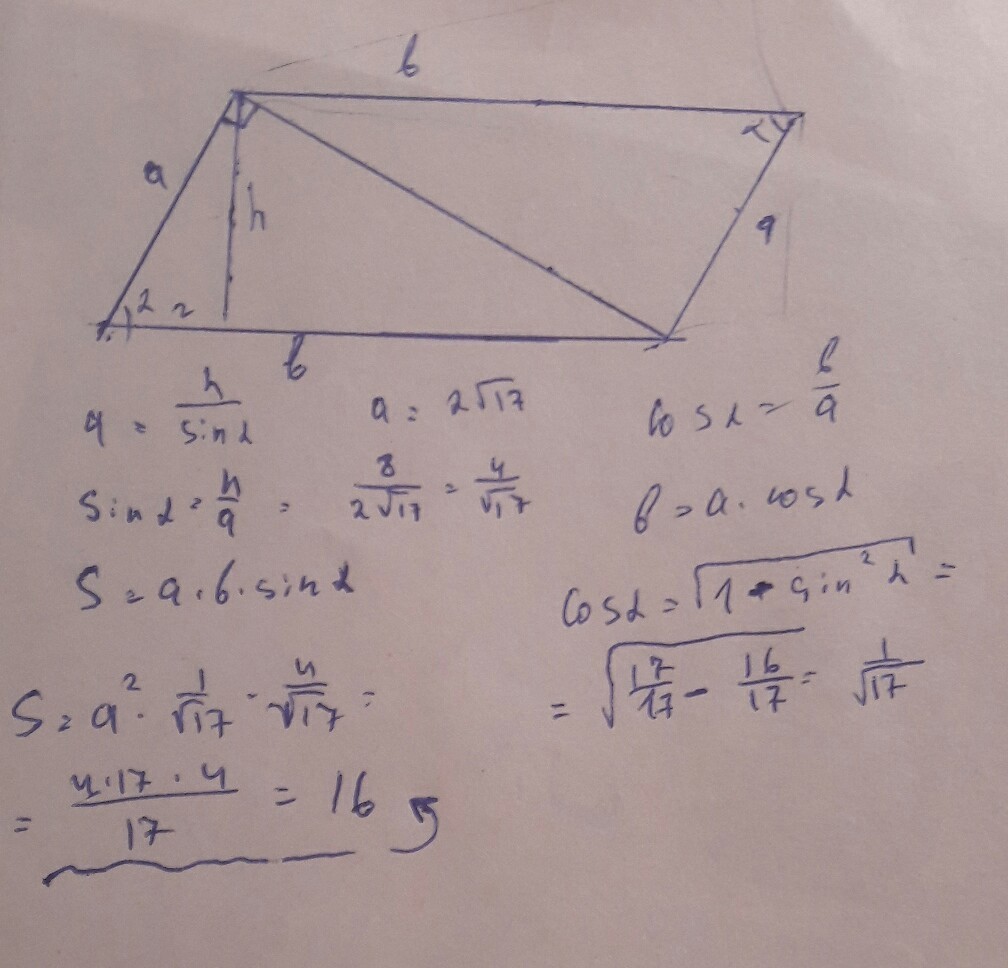 b
a
h
α
a
α 2
b
a = h/sin α a = 2√17 cos α = b/a
sin α = h/a = 8/2√17 = 4/√17 b = a · cos α
S = a · b · sin α cos α = √1 - sin² α =
S = a² · 1/√17 · 4/√17 = = √17/17 - 16/17 = 1/√17
= 4·17·4/17 = 16